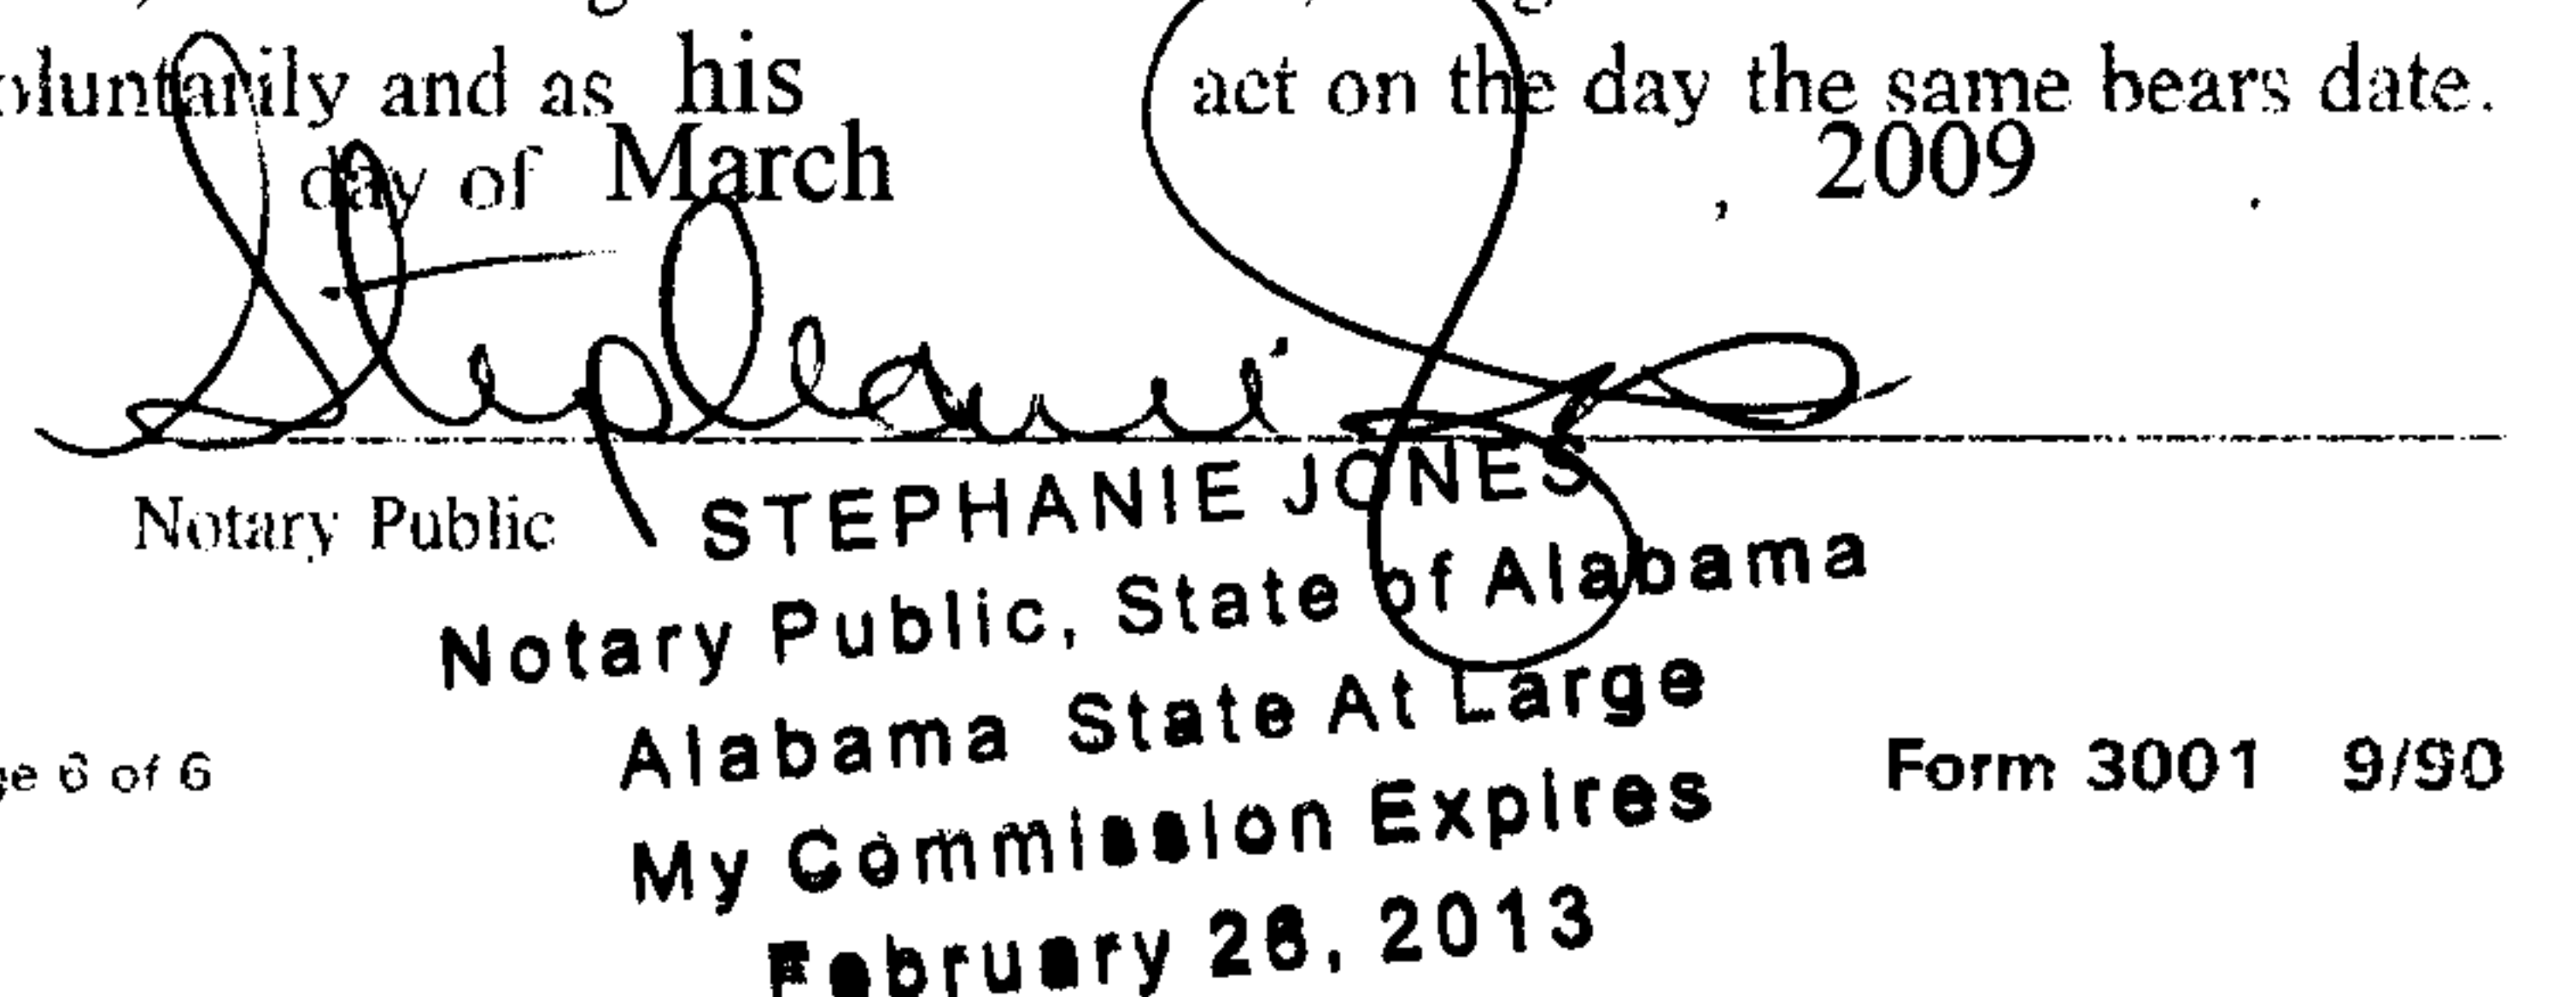 oluntarily and as his act on the day the same bears date.
day of March , 2009 .
Stephanie Jones
Notary Public
STEPHANIE JONES
Notary Public, State of Alabama
Alabama State At Large
My Commission Expires
February 26, 2013
ge 6 of 6
Form 3001 9/90